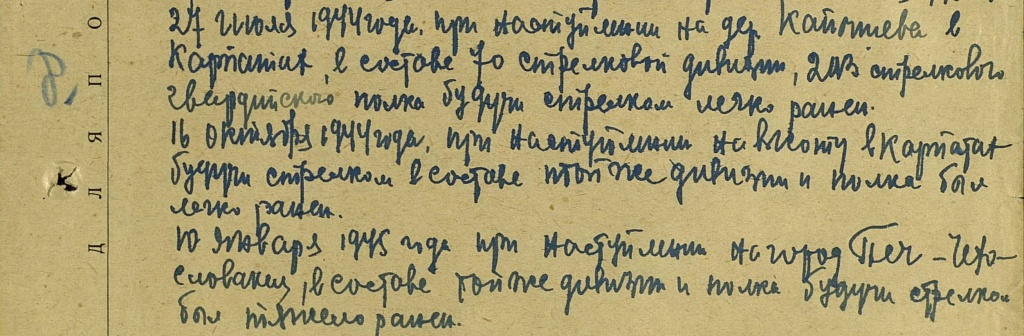 27 июля 1944 года, при наступлении на дер. Капышева в
Карпатах, в составе 70 стрелковой дивизии, 203 стрелкового
гвардийского полка будучи стрелком легко ранен.
16 октября 1944 года, при наступлении на высоту в Карпатах
будучи стрелком в составе этой же дивизии и полка был
легко ранен.
10 января 1945 года при наступлении на город Печ - Чехо-
словакия, в составе той же дивизии и полка будучи стрелком
был тяжело ранен.
ДЛЯ ПО